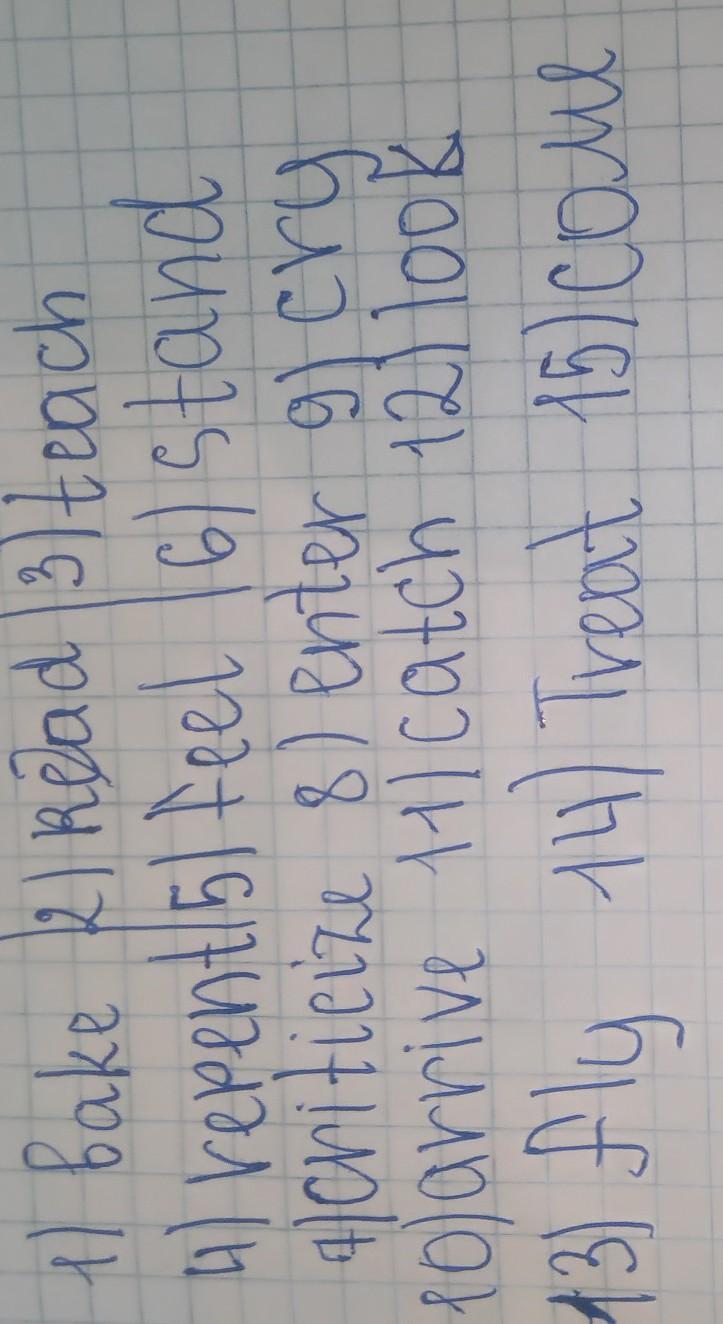 1) bake 2) Read 3) teach
4) repent 5) feel 6) stand
7) criticize 8) enter 9) cry
10) arrive 11) catch 12) look
13) fly 14) Treat 15) come